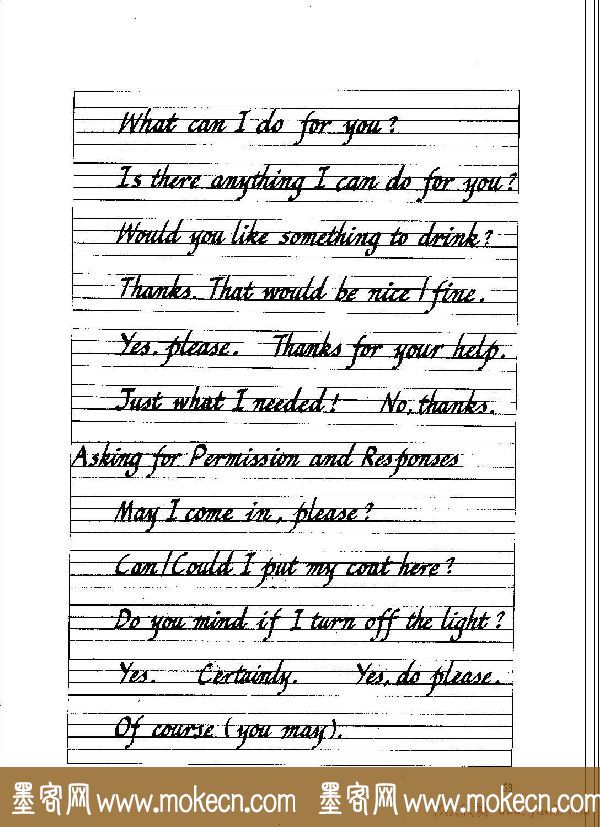 What can I do for you?
Is there anything I can do for you?
Would you like something to drink?
Thanks. That would be nice / fine.
Yes, please. Thanks for your help.
Just what I needed! No, thanks.
Asking for Permission and Responses
May I come in, please?
Can / Could I put my coat here?
Do you mind if I turn off the light?
Yes. Certainly. Yes, do please.
Of course (you may).
墨客网 www.mokecn.com 墨客网 www.mokecn.com